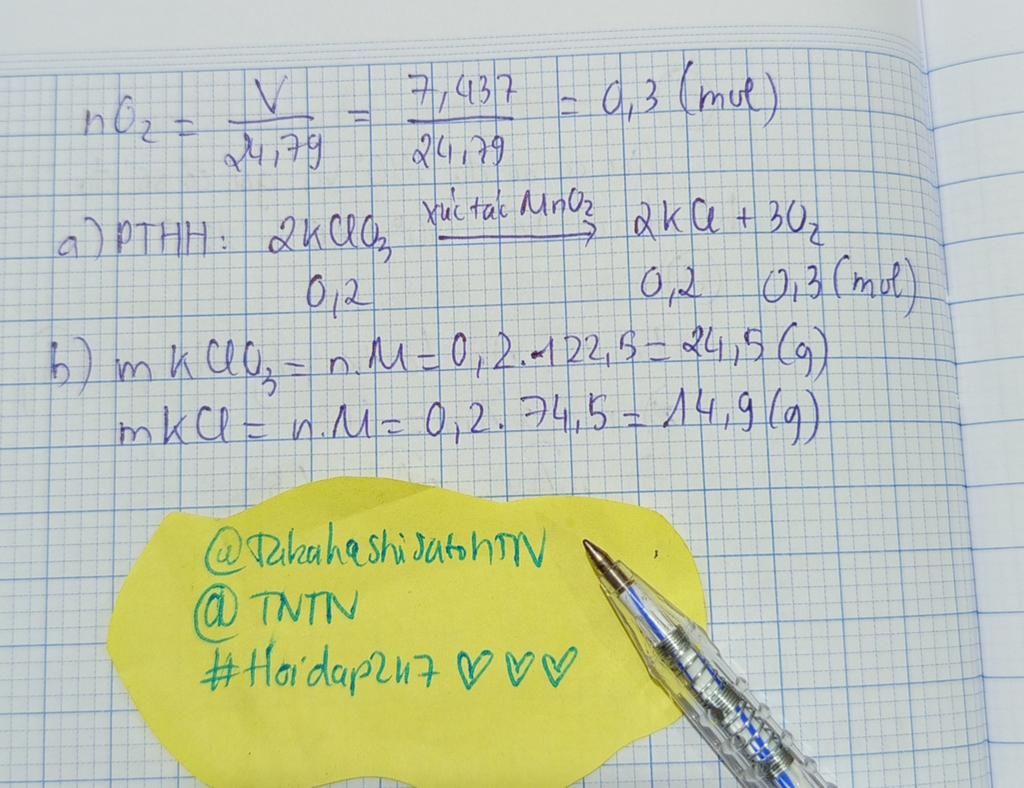 nO₂ = V/24,79 = 7,437/24,79 = 0,3 (mol)
a) PTHH: 2KClO₃ xúc tác MnO₂ → 2KCl + 3O₂
0,2 0,2 0,3 (mol)
b) mKClO₃ = n.M = 0,2.122,5 = 24,5 (g)
mKCl = n.M = 0,2.74,5 = 14,9 (g)
@TakahashiSatohTN
@TNTN
#Hoidap247 ♡ ♡ ♡